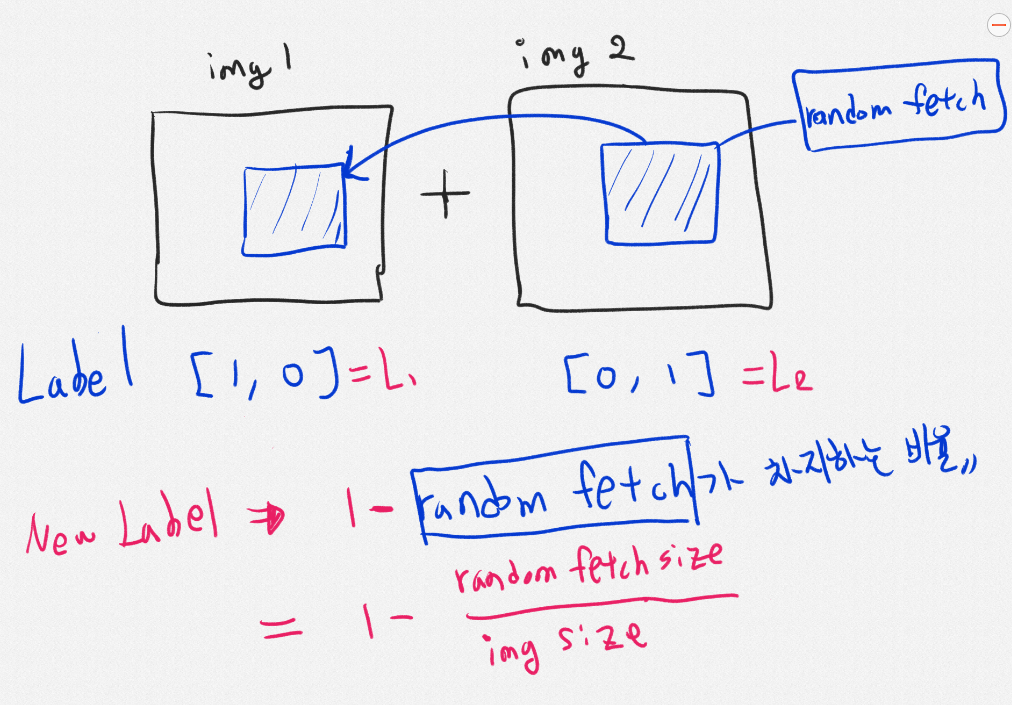 img 1
img 2
random fetch
Label [1, 0] = L1 [0, 1] = L2
New Label ⇒ 1 - random fetch가 차지하는 비율,,
= 1 - random fetch size
img size